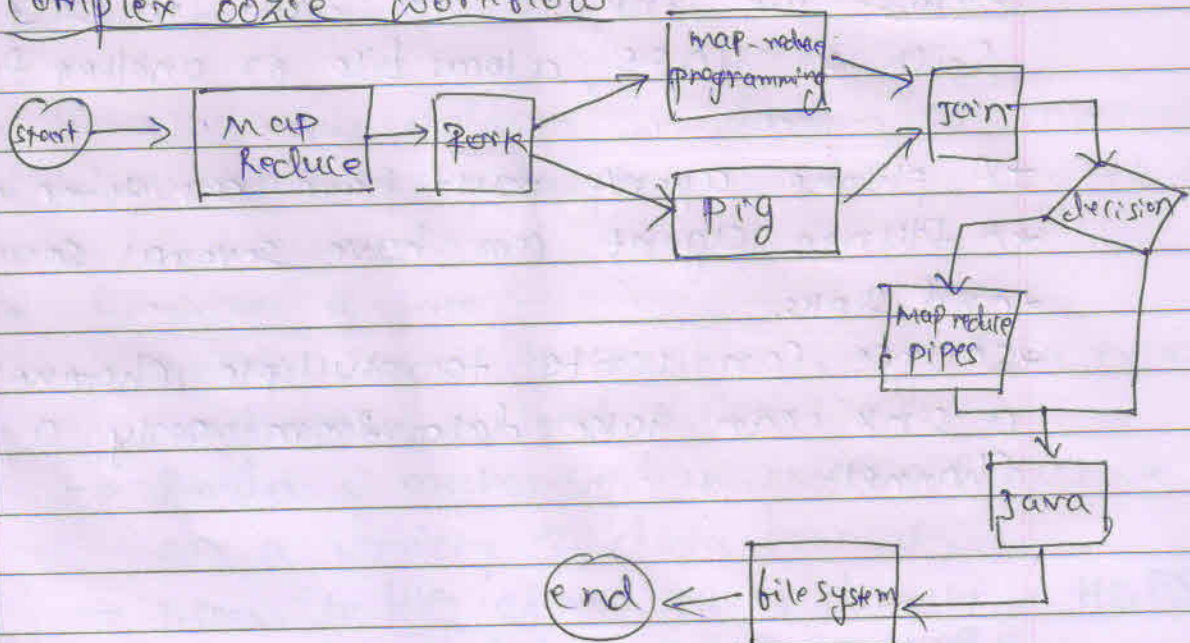 Complex oozie workflow
start
Map
Reduce
Fork
map-reduce
programming
pig
Join
decision
Map reduce
pipes
Java
file system
end